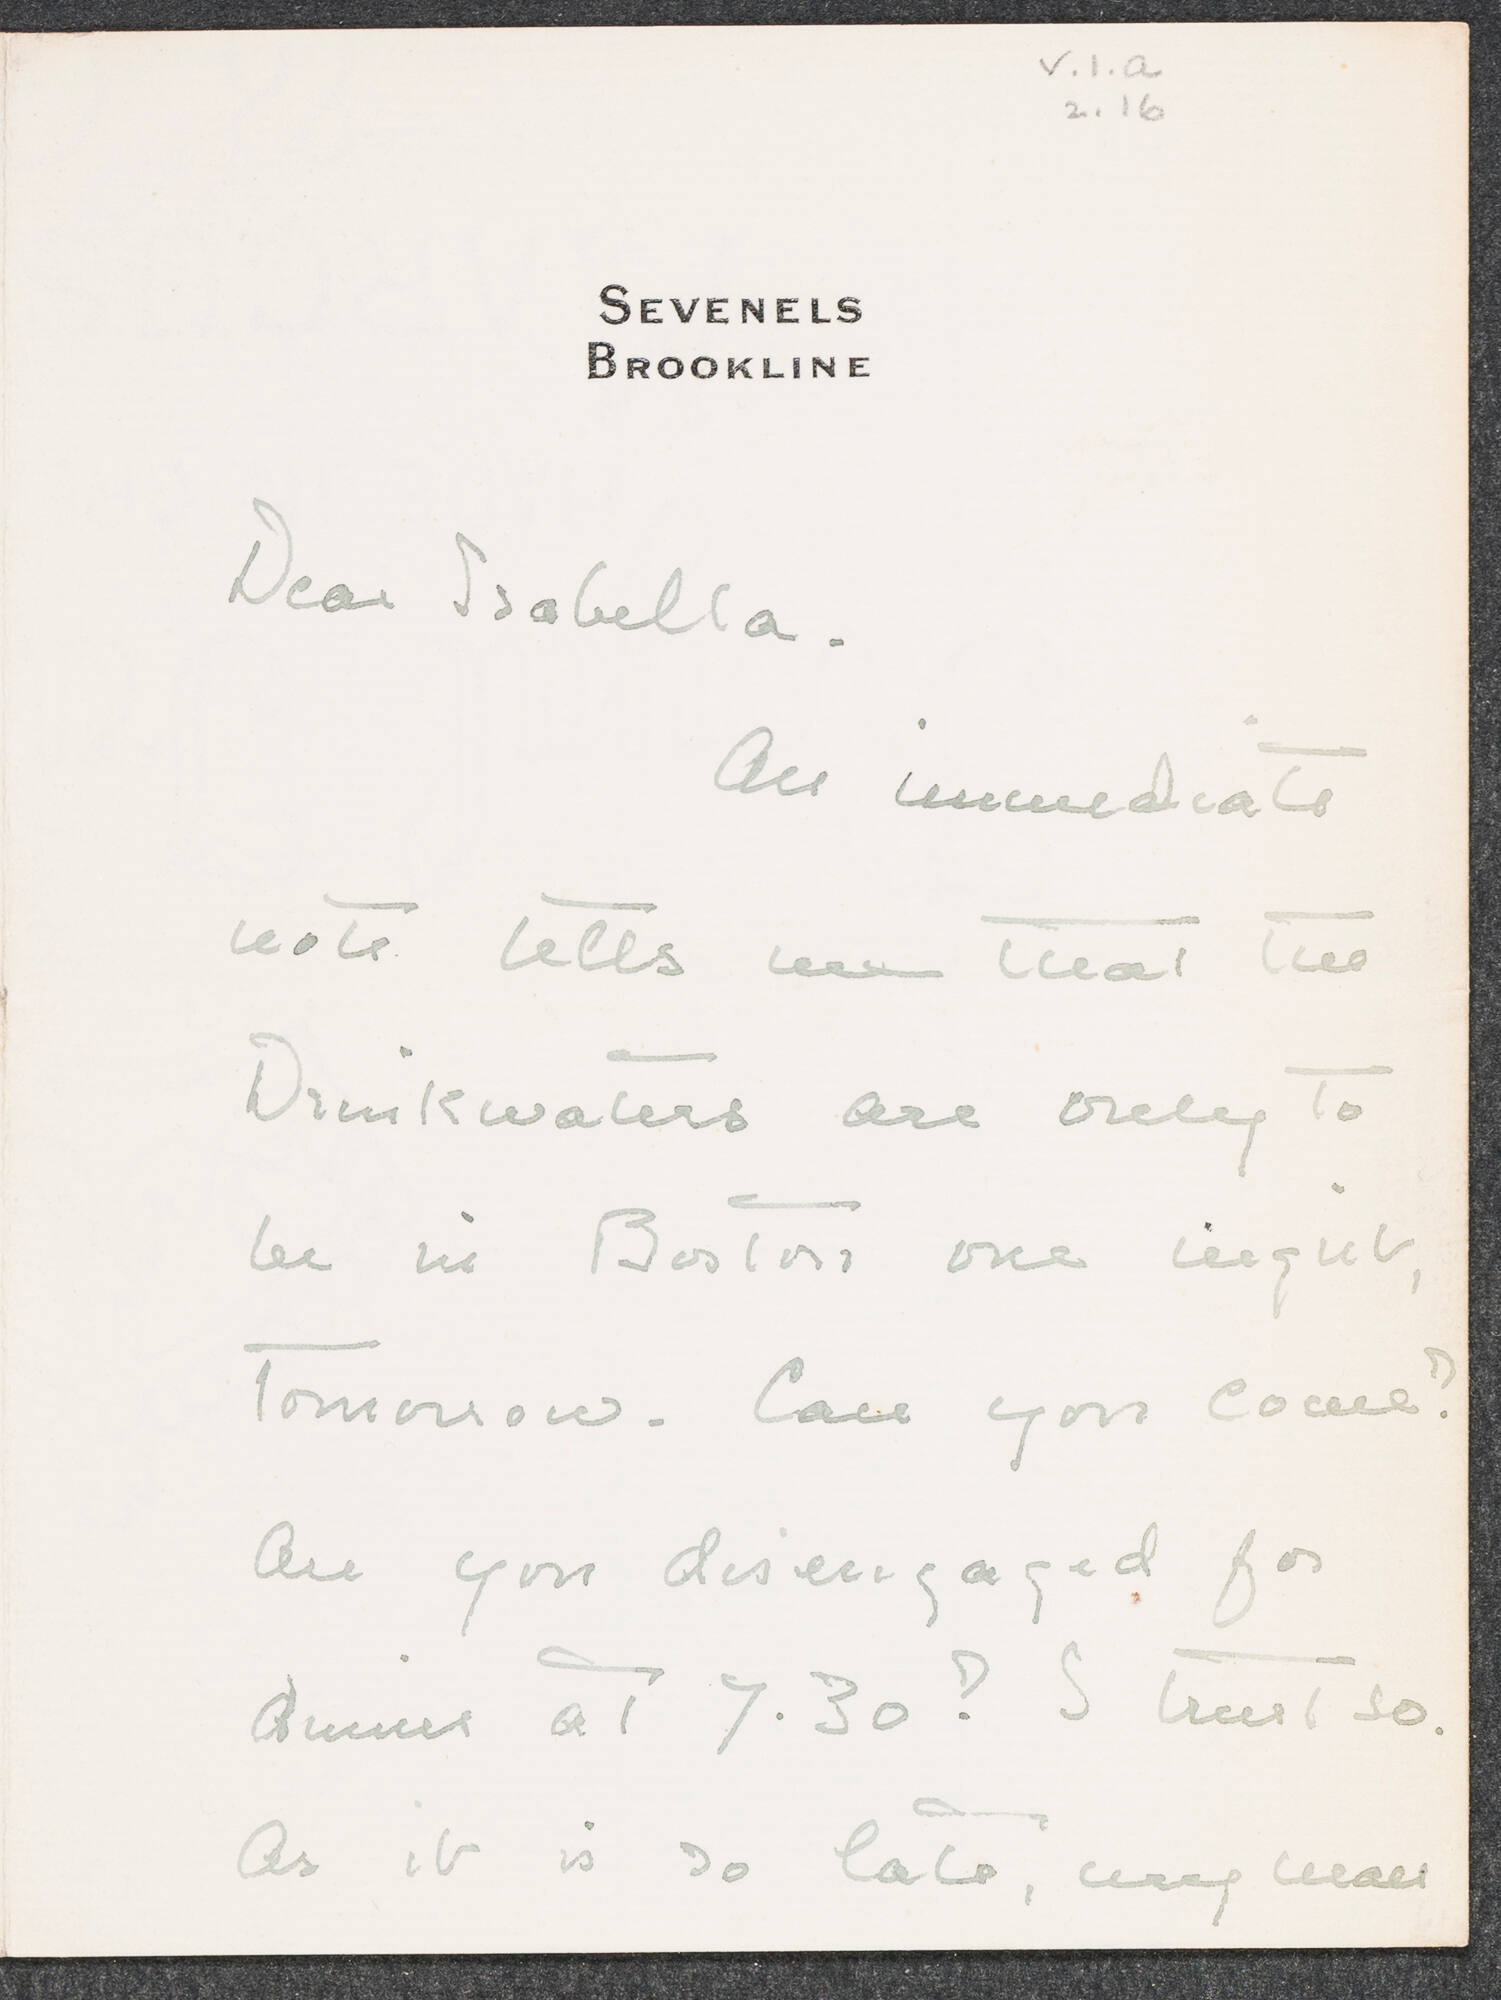 v.1.a
2.16
SEVENELS
BROOKLINE
Dear Isabella.
An immediate
note tells me that the
Drinkwaters are only to
be in Boston one night,
tomorrow. Can you come?
Are you disengaged for
dinner at 7.30? I trust so.
As it is so late, my man